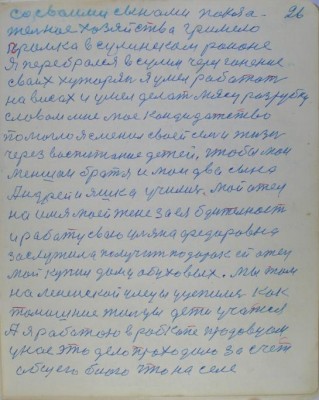 26
со своими сынами показа-
тельное хозяйства гримело
в сулинском районе
я перебрался в сулин чериз гонение
своих хуторян я умел работат
на висах и умел делат мясу разрубку
словом мне мое кандидатство
помогло я сменил своей сем и жизн
через воспитание детей, чтобы мои
меншии братя и мои два сына
Андрей и яшка училис, мой отец
на имя моей жене за ея бдителност
и работу свою уляна федоровна
заслужила получит подарок ей отец
мой купил дом у обуховых. Мы там
на ленинской улецы ужились как
дети учатся
А я работаю в рабкопе продовцом
у нас это дело проходило за счет
общего что на селе